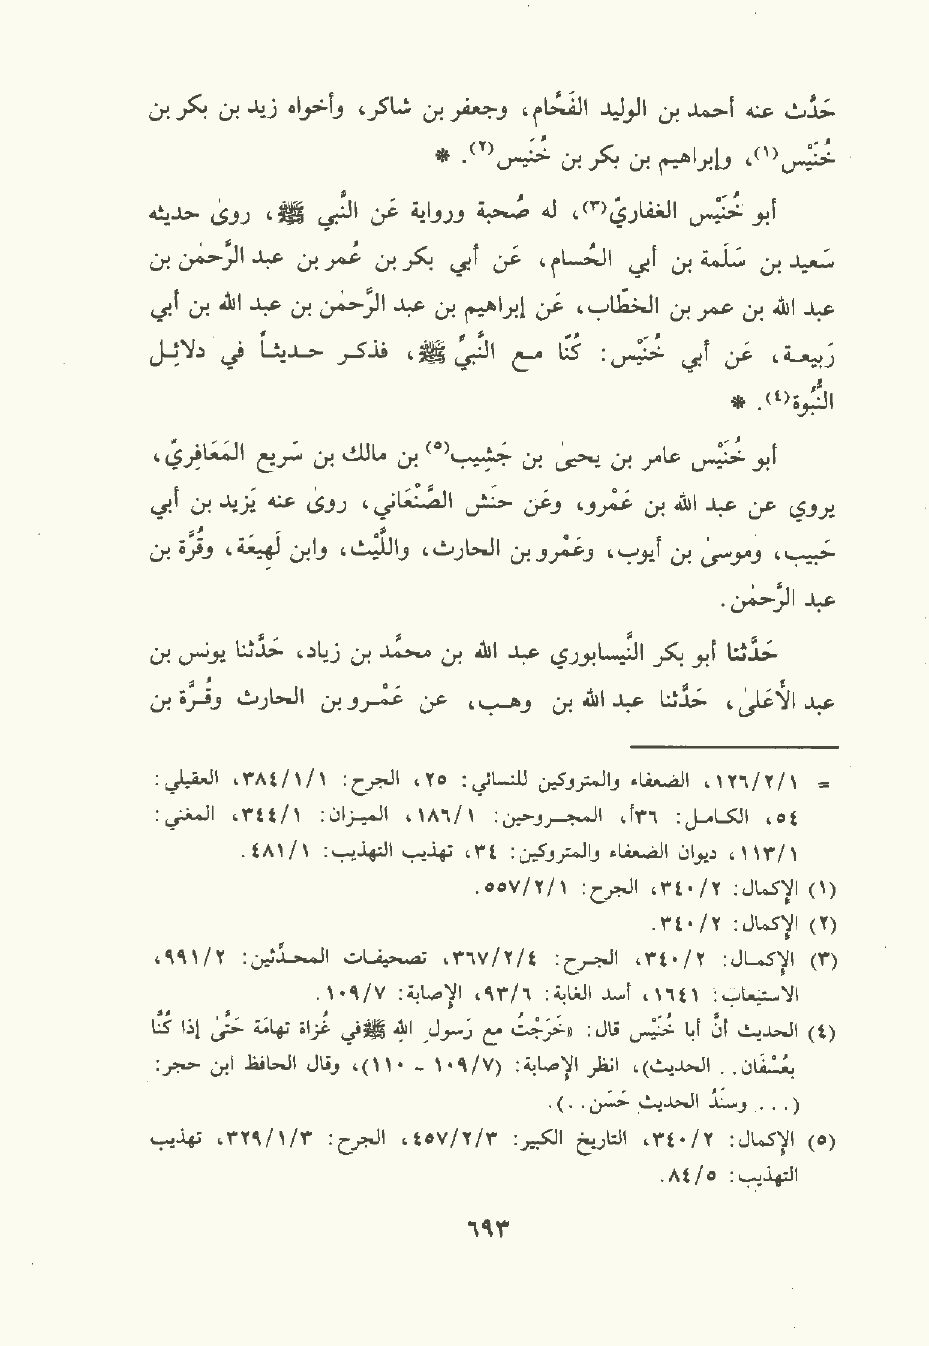 حَدَّث عنه أحمد بن الوليد الفَحَّام، وجعفر بن شاكر، وأخواه زيد بن بكر بن
خُنَيْس(١)، وإبراهيم بن بكر بن خُنَيس(٢). *
أبو خُنَيْس الغفاريّ(٣)، له صُحبة ورواية عَن النَّبي ﷺ، روىٰ حديثه
سَعيد بن سَلَمة بن أبي الحُسام، عَن أبي بكر بن عُمر بن عبد الرَّحمٰن بن
عبد الله بن عمر بن الخطَّاب، عَن إبراهيم بن عبد الرَّحمٰن بن عبد الله بن أبي
رَبيعة، عَن أبي خُنَيْس: كُنَّا مع النَّبيِّ ﷺ، فذكر حديثاً في دلائِل
النُّبُوة(٤). *
أبو خُنَيْس عامر بن يحيىٰ بن جَشِيب(٥) بن مالك بن سَريع المَعَافِريّ،
يروي عن عبد الله بن عَمْرو، وعَن حَنَش الصَّنْعَاني، روىٰ عنه يَزيد بن أبي
حَبيب، وموسىٰ بن أيوب، وعَمْرو بن الحارث، واللَّيْث، وابن لَهِيعَة، وقُرَّة بن
عبد الرَّحمٰن.
حَدَّثنا أبو بكر النَّيسابوري عبد الله بن محمَّد بن زياد، حَدَّثنا يونس بن
عبد الأَعلىٰ، حَدَّثنا عبد الله بن وهب، عن عَمْرو بن الحارث وقُرَّة بن
= ١٢٦/٢/١، الضعفاء والمتروكين للنسائي: ٢٥، الجرح: ٣٨٤/١/١، العقيلي:
٥٤، الكامل: ٣٦أ، المجروحين: ١٨٦/١، الميزان: ٣٤٤/١، المغني:
١١٣/١، ديوان الضعفاء والمتروكين: ٣٤، تهذيب التهذيب: ٤٨١/١.
(١) الإكمال: ٣٤٠/٢، الجرح: ٥٥٧/٢/١.
(٢) الإكمال: ٣٤٠/٢.
(٣) الإكمال: ٣٤٠/٢، الجرح: ٣٦٧/٢/٤، تصحيفات المحدَّثين: ٩٩١/٢،
الاستيعاب: ١٦٤١، أسد الغابة: ٩٣/٦، الإصابة: ١٠٩/٧.
(٤) الحديث أنَّ أبا خُنَيْس قال: «خَرَجْتُ مع رَسول الله ﷺ في غُزاة تهامَة حَتَّىٰ إذا كُنَّا
بعُسْفَان.. الحديث)، انظر الإصابة: (١٠٩/٧ - ١١٠)، وقال الحافظ ابن حجر:
(... وسنَدُ الحديث حَسَن..).
(٥) الإكمال: ٣٤٠/٢، التاريخ الكبير: ٤٥٧/٢/٣، الجرح: ٣٢٩/١/٣، تهذيب
التهذيب: ٨٤/٥.
٦٩٣